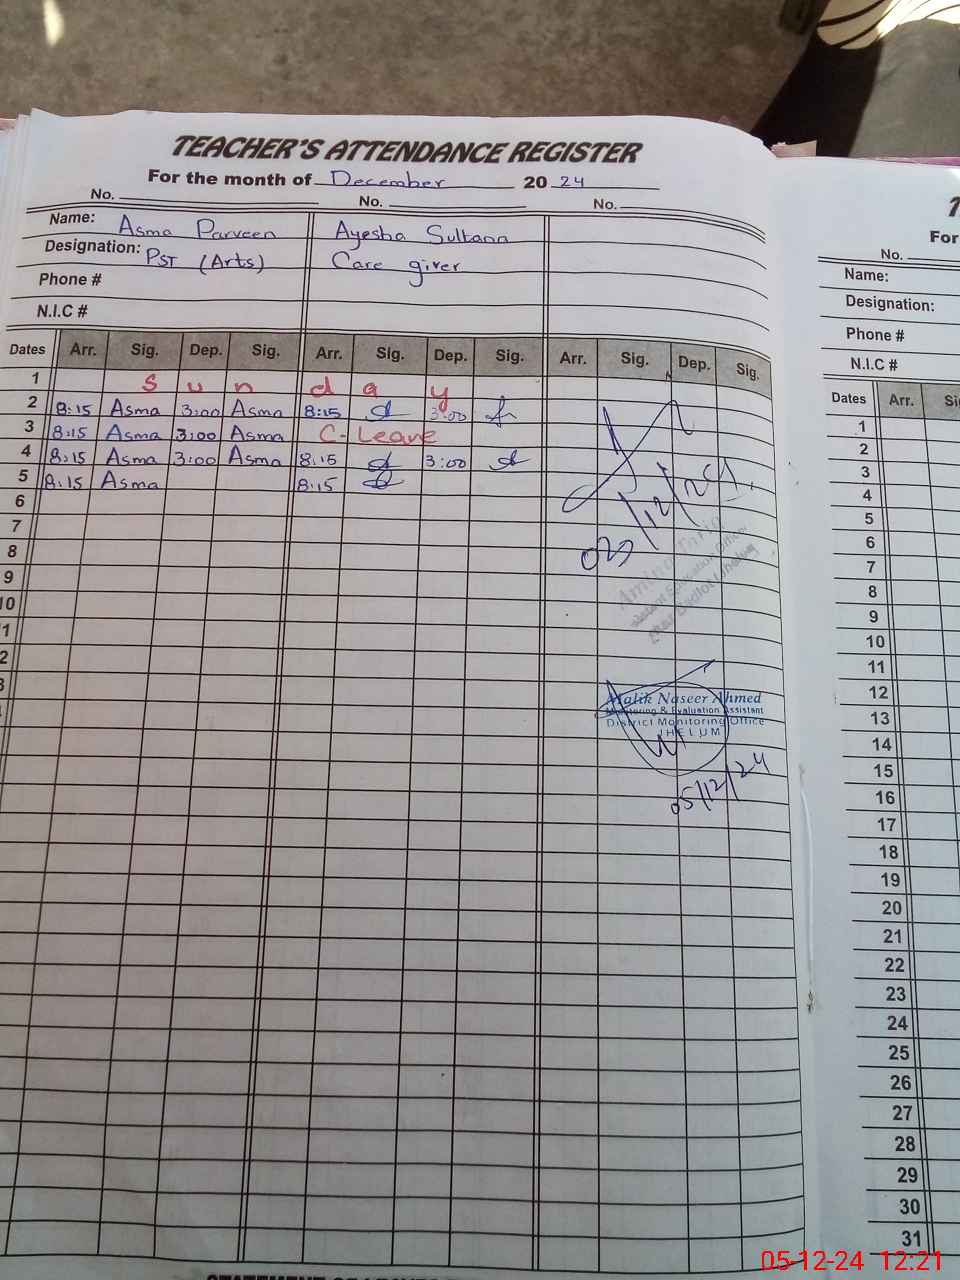 TEACHER'S ATTENDANCE REGISTER
For the month of December 20 24
No. No. No.
Name: Asma Parveen Ayesha Sultana
Designation: PST (Arts) Care giver
Phone #
N.I.C #
Dates Arr. Sig. Dep. Sig. Arr. Sig. Dep. Sig. Arr. Sig. Dep. Sig.
1 S u n d a y
2 8:15 Asma 3:00 Asma 8:15 3:00
3 8:15 Asma 3:00 Asma C-Leave
4 8:15 Asma 3:00 Asma 8:15 3:00
5 8:15 Asma 8:15
6
7
8
9
10
1
2
3
/12/24
Amina
Education Officer
Malik Naseer Ahmed
Monitoring & Evaluation Assistant
District Monitoring Office
JHELUM
05/12/24
For
No.
Name:
Designation:
Phone #
N.I.C #
Dates Arr.
1
2
3
4
5
6
7
8
9
10
11
12
13
14
15
16
17
18
19
20
21
22
23
24
25
26
27
28
29
30
31
05-12-24 12:21